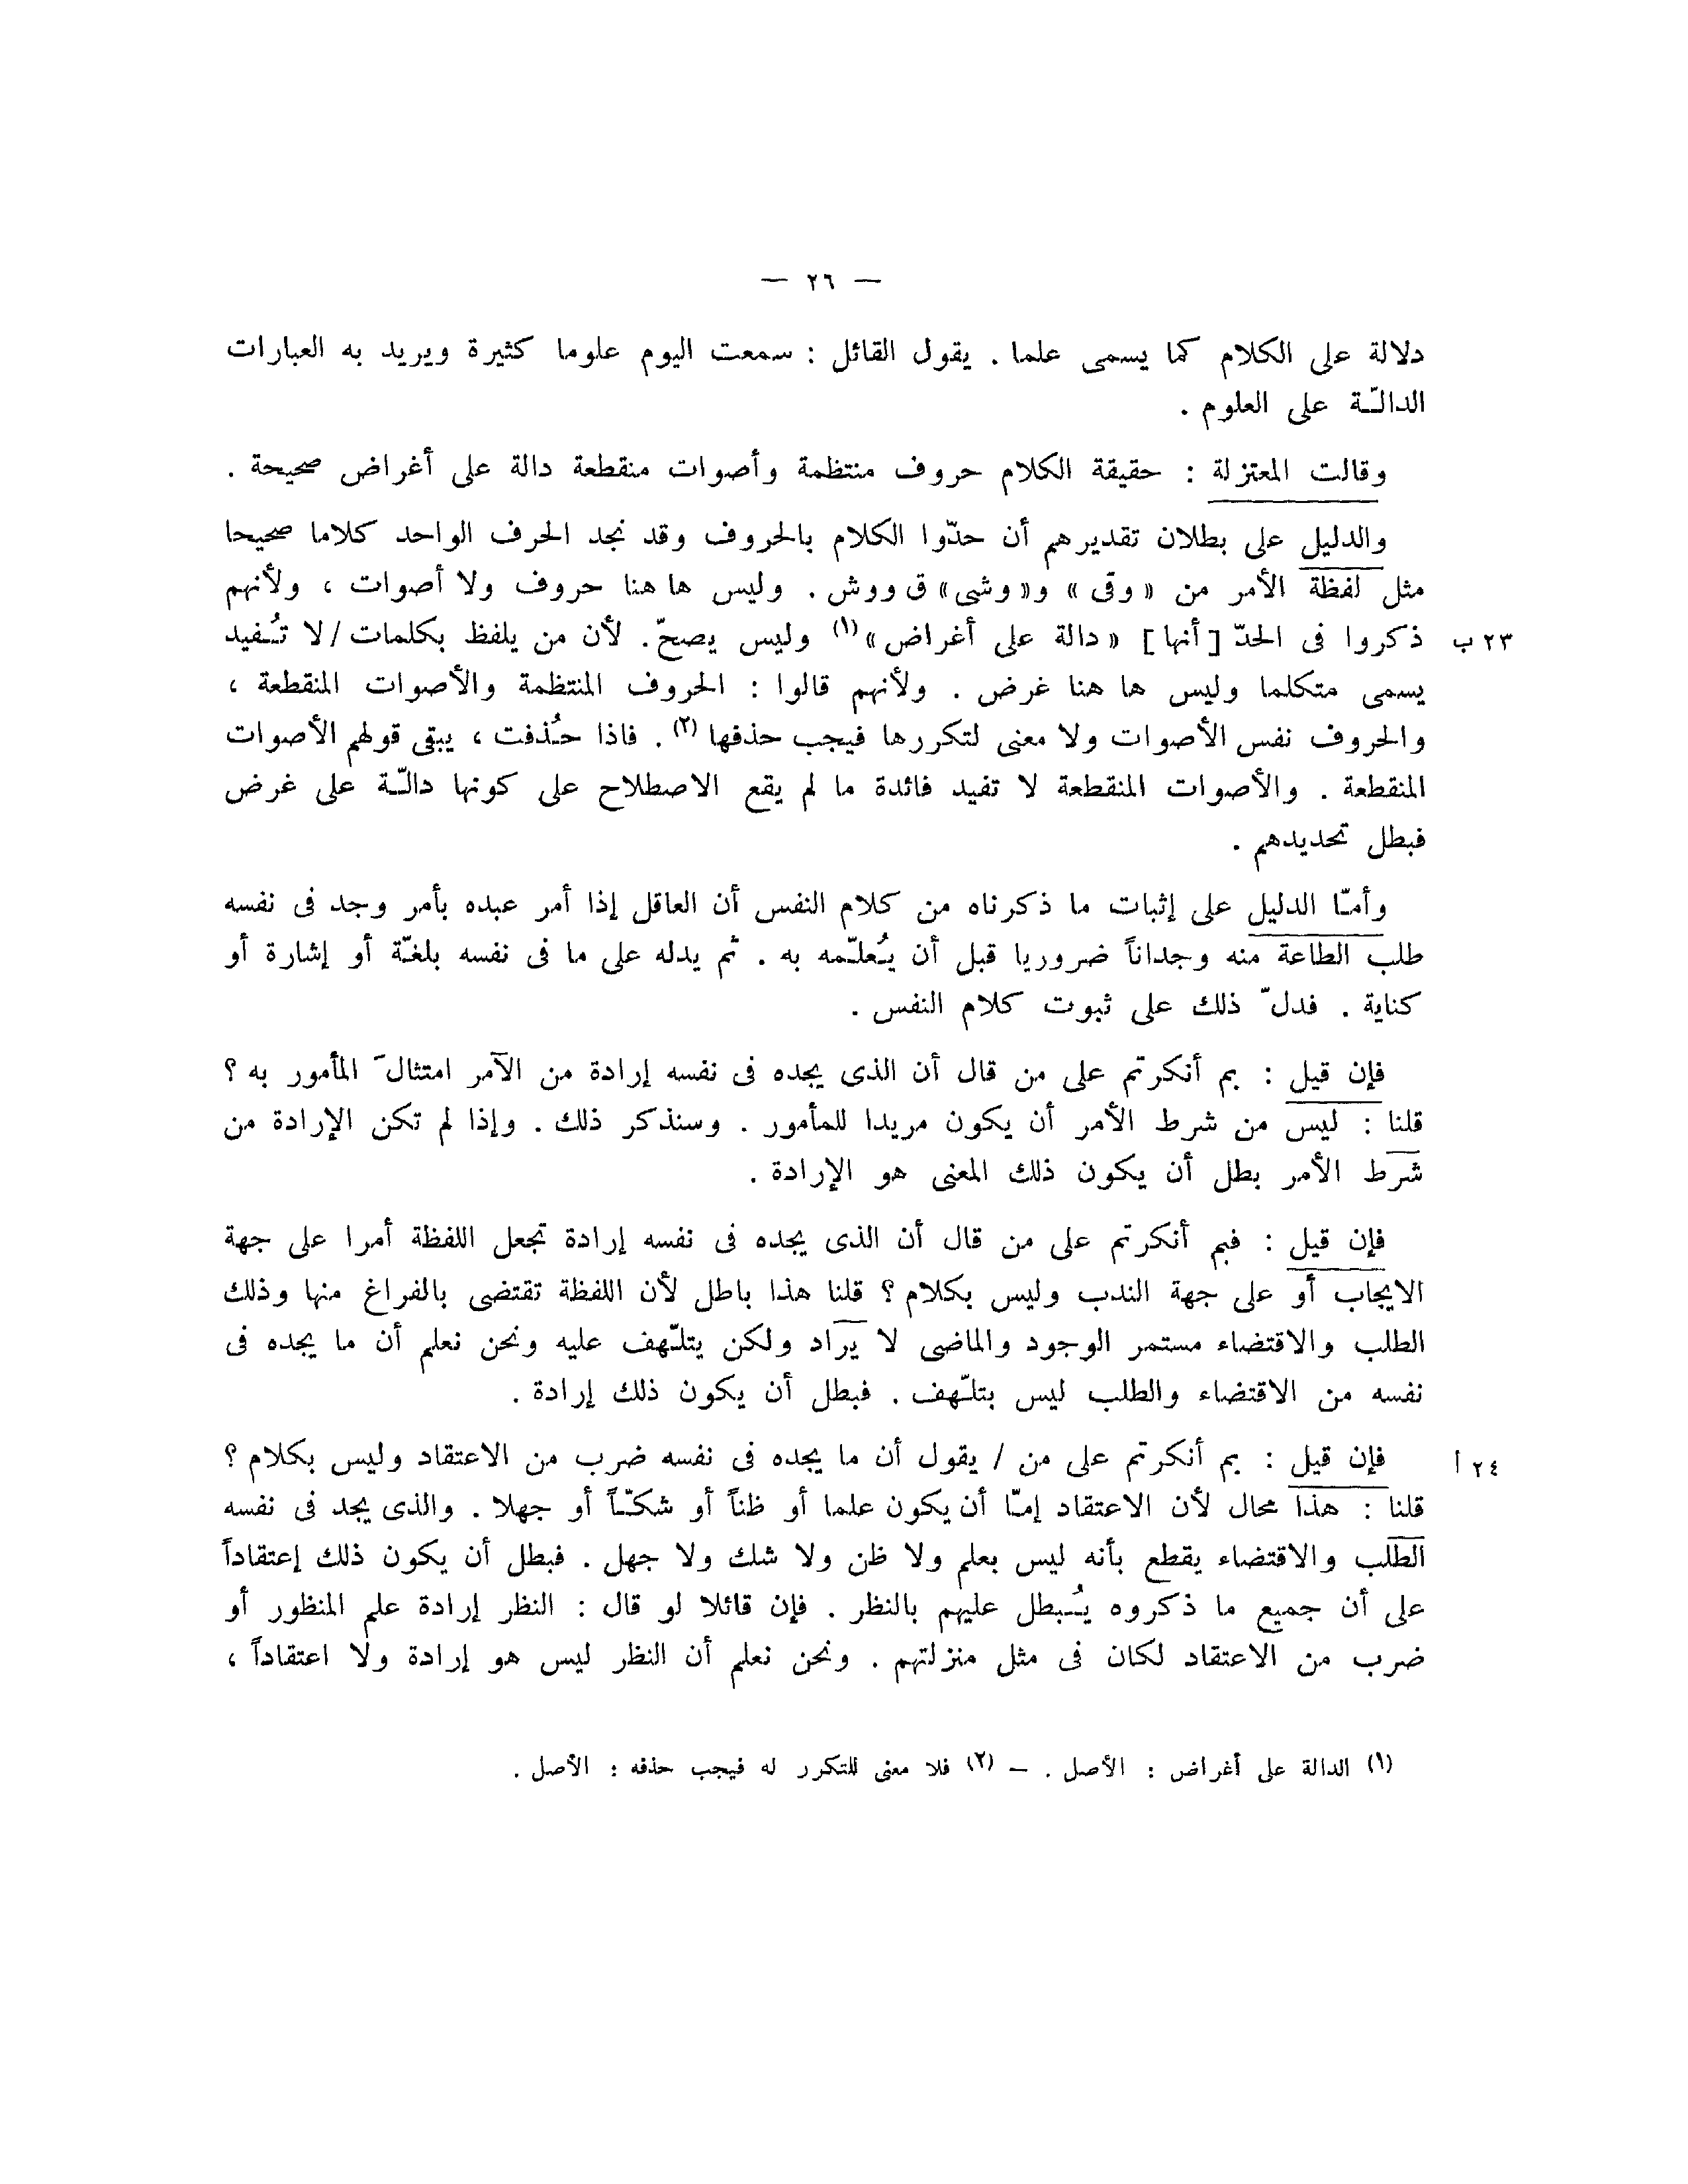 — ٢٦ —
دلالة على الكلام كما يسمى علما . يقول القائل : سمعت اليوم علوما كثيرة ويريد به العبارات
الدالّة على العلوم .
وقالت المعتزلة : حقيقة الكلام حروف منتظمة وأصوات منقطعة دالة على أغراض صحيحة .
والدليل على بطلان تقديرهم أن حدّوا الكلام بالحروف وقد نجد الحرف الواحد كلاما صحيحا
مثل لفظة الأمر من « وقى » و« وشى » ق ووش . وليس ها هنا حروف ولا أصوات ، ولأنهم
ذكروا فى الحدّ [ أنها ] « دالة على أغراض » (١) وليس يصحّ. لأن من يلفظ بكلمات / لا تُفيد ٢٣ ب
يسمى متكلما وليس ها هنا غرض . ولأنهم قالوا : الحروف المنتظمة والأصوات المنقطعة ،
والحروف نفس الأصوات ولا معنى لتكررها فيجب حذفها (٢) . فاذا حُذفت ، يبقى قولهم الأصوات
المنقطعة . والأصوات المنقطعة لا تفيد فائدة ما لم يقع الاصطلاح على كونها دالّة على غرض
فبطل تحديدهم .
وأمّا الدليل على إثبات ما ذكرناه من كلام النفس أن العاقل إذا أمر عبده بأمر وجد فى نفسه
طلب الطاعة منه وجداناً ضروريا قبل أن يُعلّمه به . ثم يدله على ما فى نفسه بلغّة أو إشارة أو
كناية . فدلّ ذلك على ثبوت كلام النفس .
فإن قيل : بم أنكرتم على من قال أن الذى يجده فى نفسه إرادة من الآمر امتثالَ المأمور به ؟
قلنا : ليس من شرط الأمر أن يكون مريدا للمأمور . وسنذكر ذلك . وإذا لم تكن الإرادة من
شرط الأمر بطل أن يكون ذلك المعنى هو الإرادة .
فإن قيل : فبم أنكرتم على من قال أن الذى يجده فى نفسه إرادة تجعل اللفظة أمرا على جهة
الايجاب أو على جهة الندب وليس بكلام ؟ قلنا هذا باطل لأن اللفظة تقتضى بالفراغ منها وذلك
الطلب والاقتضاء مستمر الوجود والماضى لا يراد ولكن يتلّهف عليه ونحن نعلم أن ما يجده فى
نفسه من الاقتضاء والطلب ليس بتلّهف . فبطل أن يكون ذلك إرادة .
فإن قيل : بم أنكرتم على من / يقول أن ما يجده فى نفسه ضرب من الاعتقاد وليس بكلام ؟ ٢٤ ا
قلنا : هذا محال لأن الاعتقاد إمّا أن يكون علما أو ظناً أو شكّاً أو جهلا . والذى يجد فى نفسه
الطلب والاقتضاء يقطع بأنه ليس بعلم ولا ظن ولا شك ولا جهل . فبطل أن يكون ذلك إعتقاداً
على أن جميع ما ذكروه يُبطل عليهم بالنظر . فإن قائلا لو قال : النظر إرادة علم المنظور أو
ضرب من الاعتقاد لكان فى مثل منزلتهم . ونحن نعلم أن النظر ليس هو إرادة ولا اعتقاداً ،
(١) الدالة على أغراض : الأصل . – (٢) فلا معنى للتكرر له فيجب حذفه : الأصل .